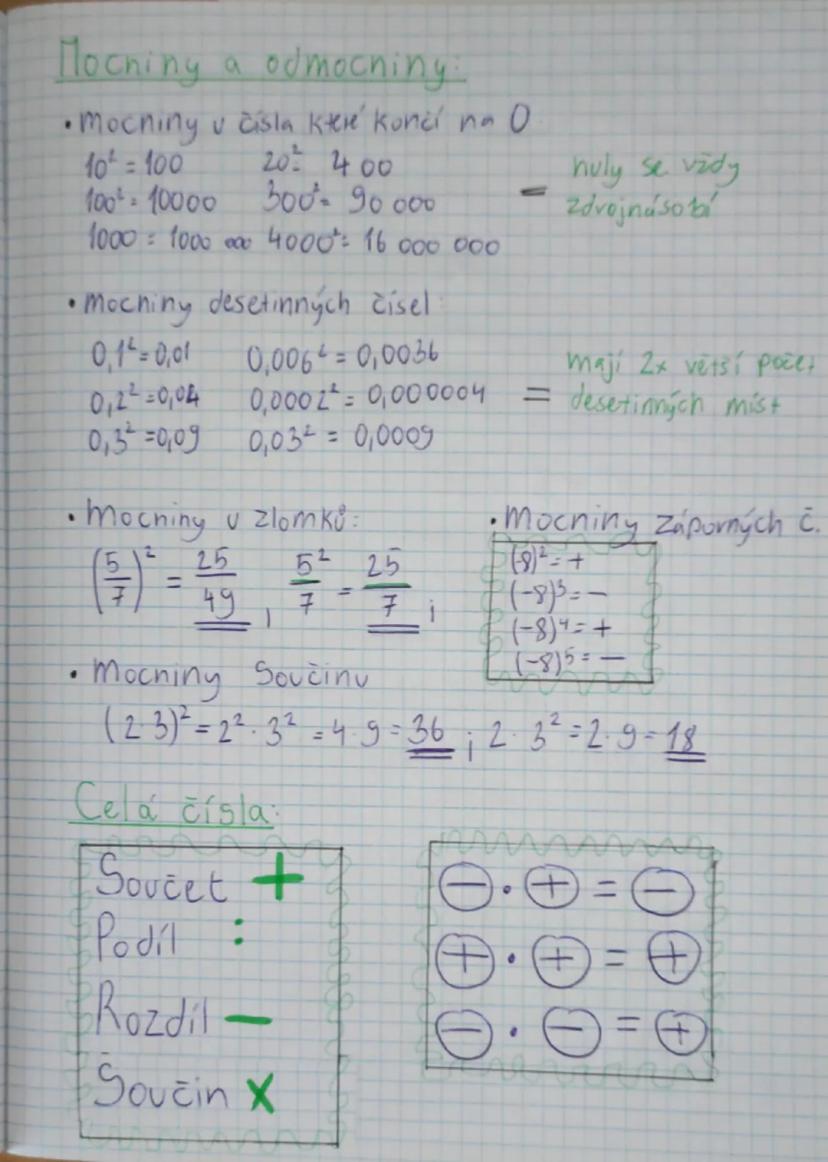 Mocniny a odmocniny:
• Mocniny u čísla které končí na 0
10² = 100 20² = 400
100² = 10000 300² = 90 000 = nuly se vždy zdvojnásobí
1000 = 1000 000 4000² = 16 000 000
• Mocniny desetinných čísel
0,1² = 0,01 0,006² = 0,0036
0,2² = 0,04 0,0002² = 0,000004 = mají 2x větší počet desetinných míst
0,3² = 0,09 0,03² = 0,0009
• Mocniny u zlomků:
(5/7)² = 25/49 , 5²/7 = 25/7 ;
• Mocniny záporných č.
(-8)² = +
(-8)³ = -
(-8)⁴ = +
(-8)⁵ = -
• Mocniny Součinu
(2·3)² = 2²·3² = 4·9 = 36 ; 2·3² = 2·9 = 18
Celá čísla:
Součet +
Podíl :
Rozdíl -
Součin x
⊖ · ⊕ = ⊖
⊕ · ⊕ = ⊕
⊖ · ⊖ = ⊕